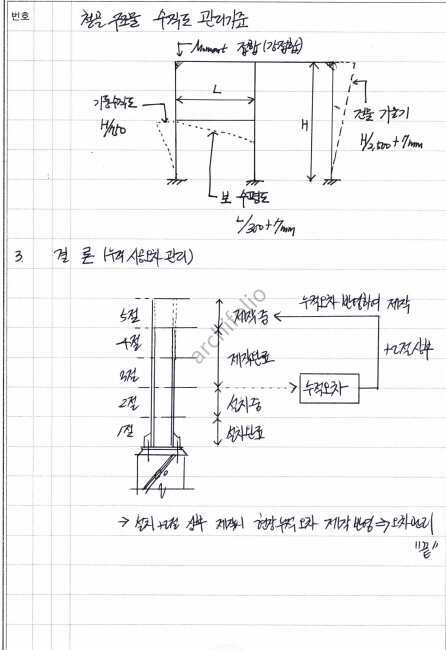 번호
철골 구조물 수직도 관리기준
Moment 접합 (강접합)
L
기둥수직도
H/750
H
건물 기울기
H/2,500+7mm
보 수평도
L/300+7mm
3. 결론 (누적 시공오차 관리)
누적오차 반영하여 제작
5절
제작중
4절
제작완료
+2절 상부
3절
누적오차
2절
설치중
1절
설치완료
archifolio
→ 설치 +2절 상부 제작시 현장누적오차 제작반영 ⇒ 오차관리
"끝"